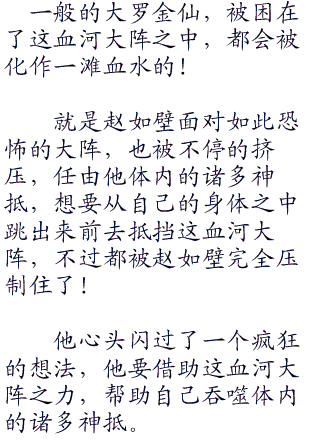 一般的大罗金仙，被困在
了这血河大阵之中，都会被
化作一滩血水的！
就是赵如壁面对如此恐
怖的大阵，也被不停的挤
压，任由他体内的诸多神
抵，想要从自己的身体之中
跳出来前去抵挡这血河大
阵，不过都被赵如壁完全压
制住了！
他心头闪过了一个疯狂
的想法，他要借助这血河大
阵之力，帮助自己吞噬体内
的诸多神抵。